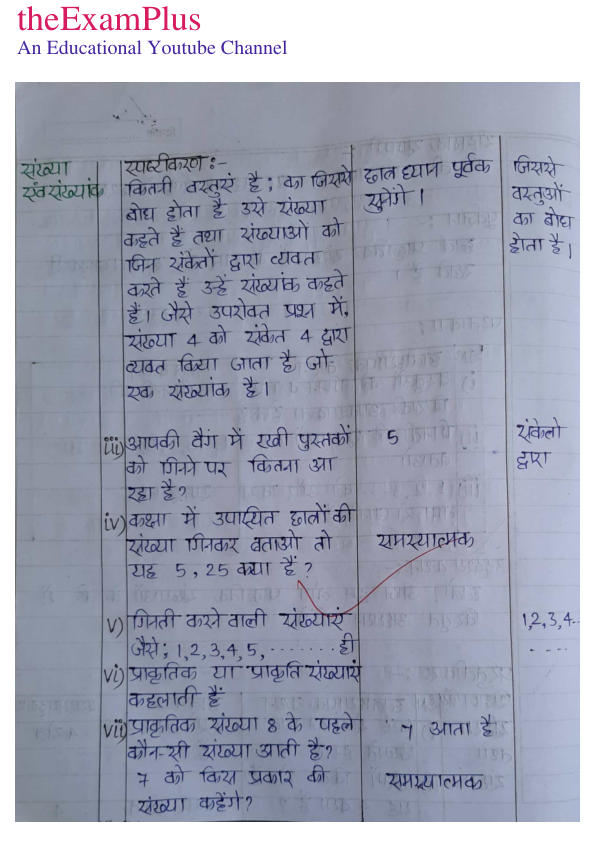 theExamPlus
An Educational Youtube Channel
संख्या
एवं संख्यांक
स्पष्टीकरण :-
कितनी वस्तुएं है ; का जिससे
बोध होता है उसे संख्या
कहते हैं तथा संख्याओं को
जिन संकेतों द्वारा व्यक्त
करते हैं उन्हें संख्यांक कहते
हैं। जैसे उपरोक्त प्रश्न में,
संख्या 4 को संकेत 4 द्वारा
व्यक्त किया जाता है जो
एक संख्यांक है।
छात्र ध्यान पूर्वक
सुनेंगे ।
जिससे
वस्तुओं
का बोध
होता है।
iii) आपकी बैग में रखी पुस्तकों
को गिनने पर कितना आ
रहा है?
5
संकेतो
द्वारा
iv) कक्षा में उपस्थित छात्रों की
संख्या गिनकर बताओ तो
यह 5, 25 क्या हैं ?
समस्यात्मक
v) गिनती करने वाली संख्याएं
जैसे; 1,2,3,4,5, ....... ही
1,2,3,4..
....
vi) प्राकृतिक या प्राकृति संख्याएं
कहलाती हैं
vii) प्राकृतिक संख्या 8 के पहले
कौन-सी संख्या आती है?
7 आता है
7 को किस प्रकार की
संख्या कहेंगे?
समस्यात्मक